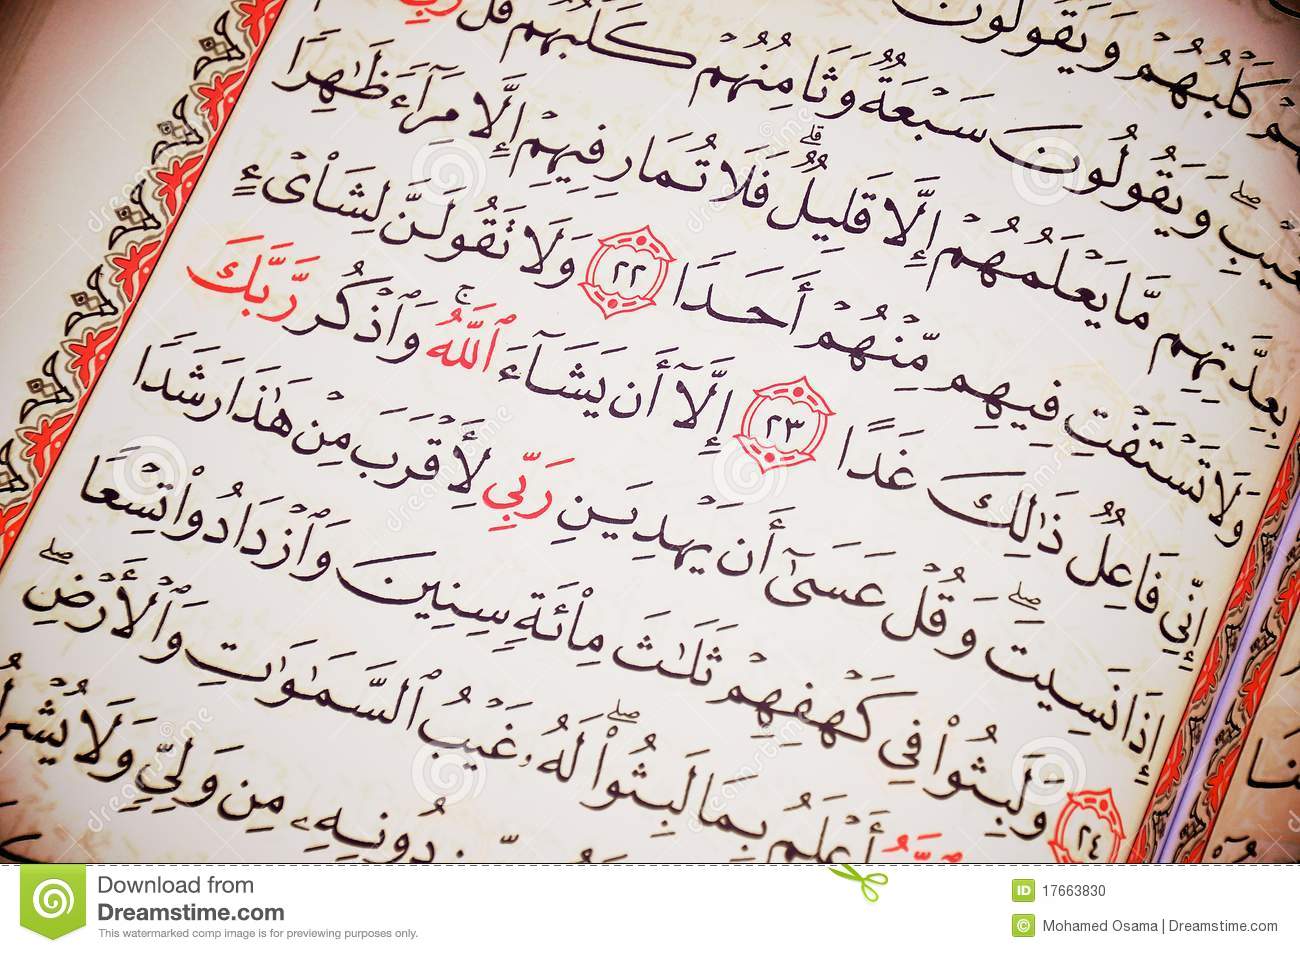 كَلْبُهُمْ وَيَقُولُونَ
وَيَقُولُونَ سَبْعَةٌ وَثَامِنُهُمْ كَلْبُهُمْ قُل
بِعِدَّتِهِم مَّا يَعْلَمُهُمْ إِلَّا قَلِيلٌ ۗ فَلَا تُمَارِ فِيهِمْ إِلَّا مِرَآءً ظَٰهِرًا
وَلَا تَسْتَفْتِ فِيهِم مِّنْهُمْ أَحَدًا ٢٢ وَلَا تَقُولَنَّ لِشَا۟ىْءٍ
إِنِّي فَاعِلٌ ذَٰلِكَ غَدًا ٢٣ إِلَّآ أَن يَشَآءَ ٱللَّهُ ۚ وَٱذْكُر رَّبَّكَ
إِذَا نَسِيتَ ۖ وَقُلْ عَسَىٰٓ أَن يَهْدِيَنِ رَبِّي لِأَقْرَبَ مِنْ هَٰذَا رَشَدًا
٢٤ وَلَبِثُوا۟ فِي كَهْفِهِمْ ثَلَٰثَ مِا۟ئَةٍ سِنِينَ وَٱزْدَادُوا۟ تِسْعًا
أَعْلَمُ بِمَا لَبِثُوا۟ ۖ لَهُۥ غَيْبُ ٱلسَّمَٰوَٰتِ وَٱلْأَرْضِ ۖ
دُونِهِۦ مِن وَلِيٍّ وَلَا
Download from
Dreamstime.com
This watermarked comp image is for previewing purposes only.
ID 17663830
© Mohamed Osama | Dreamstime.com